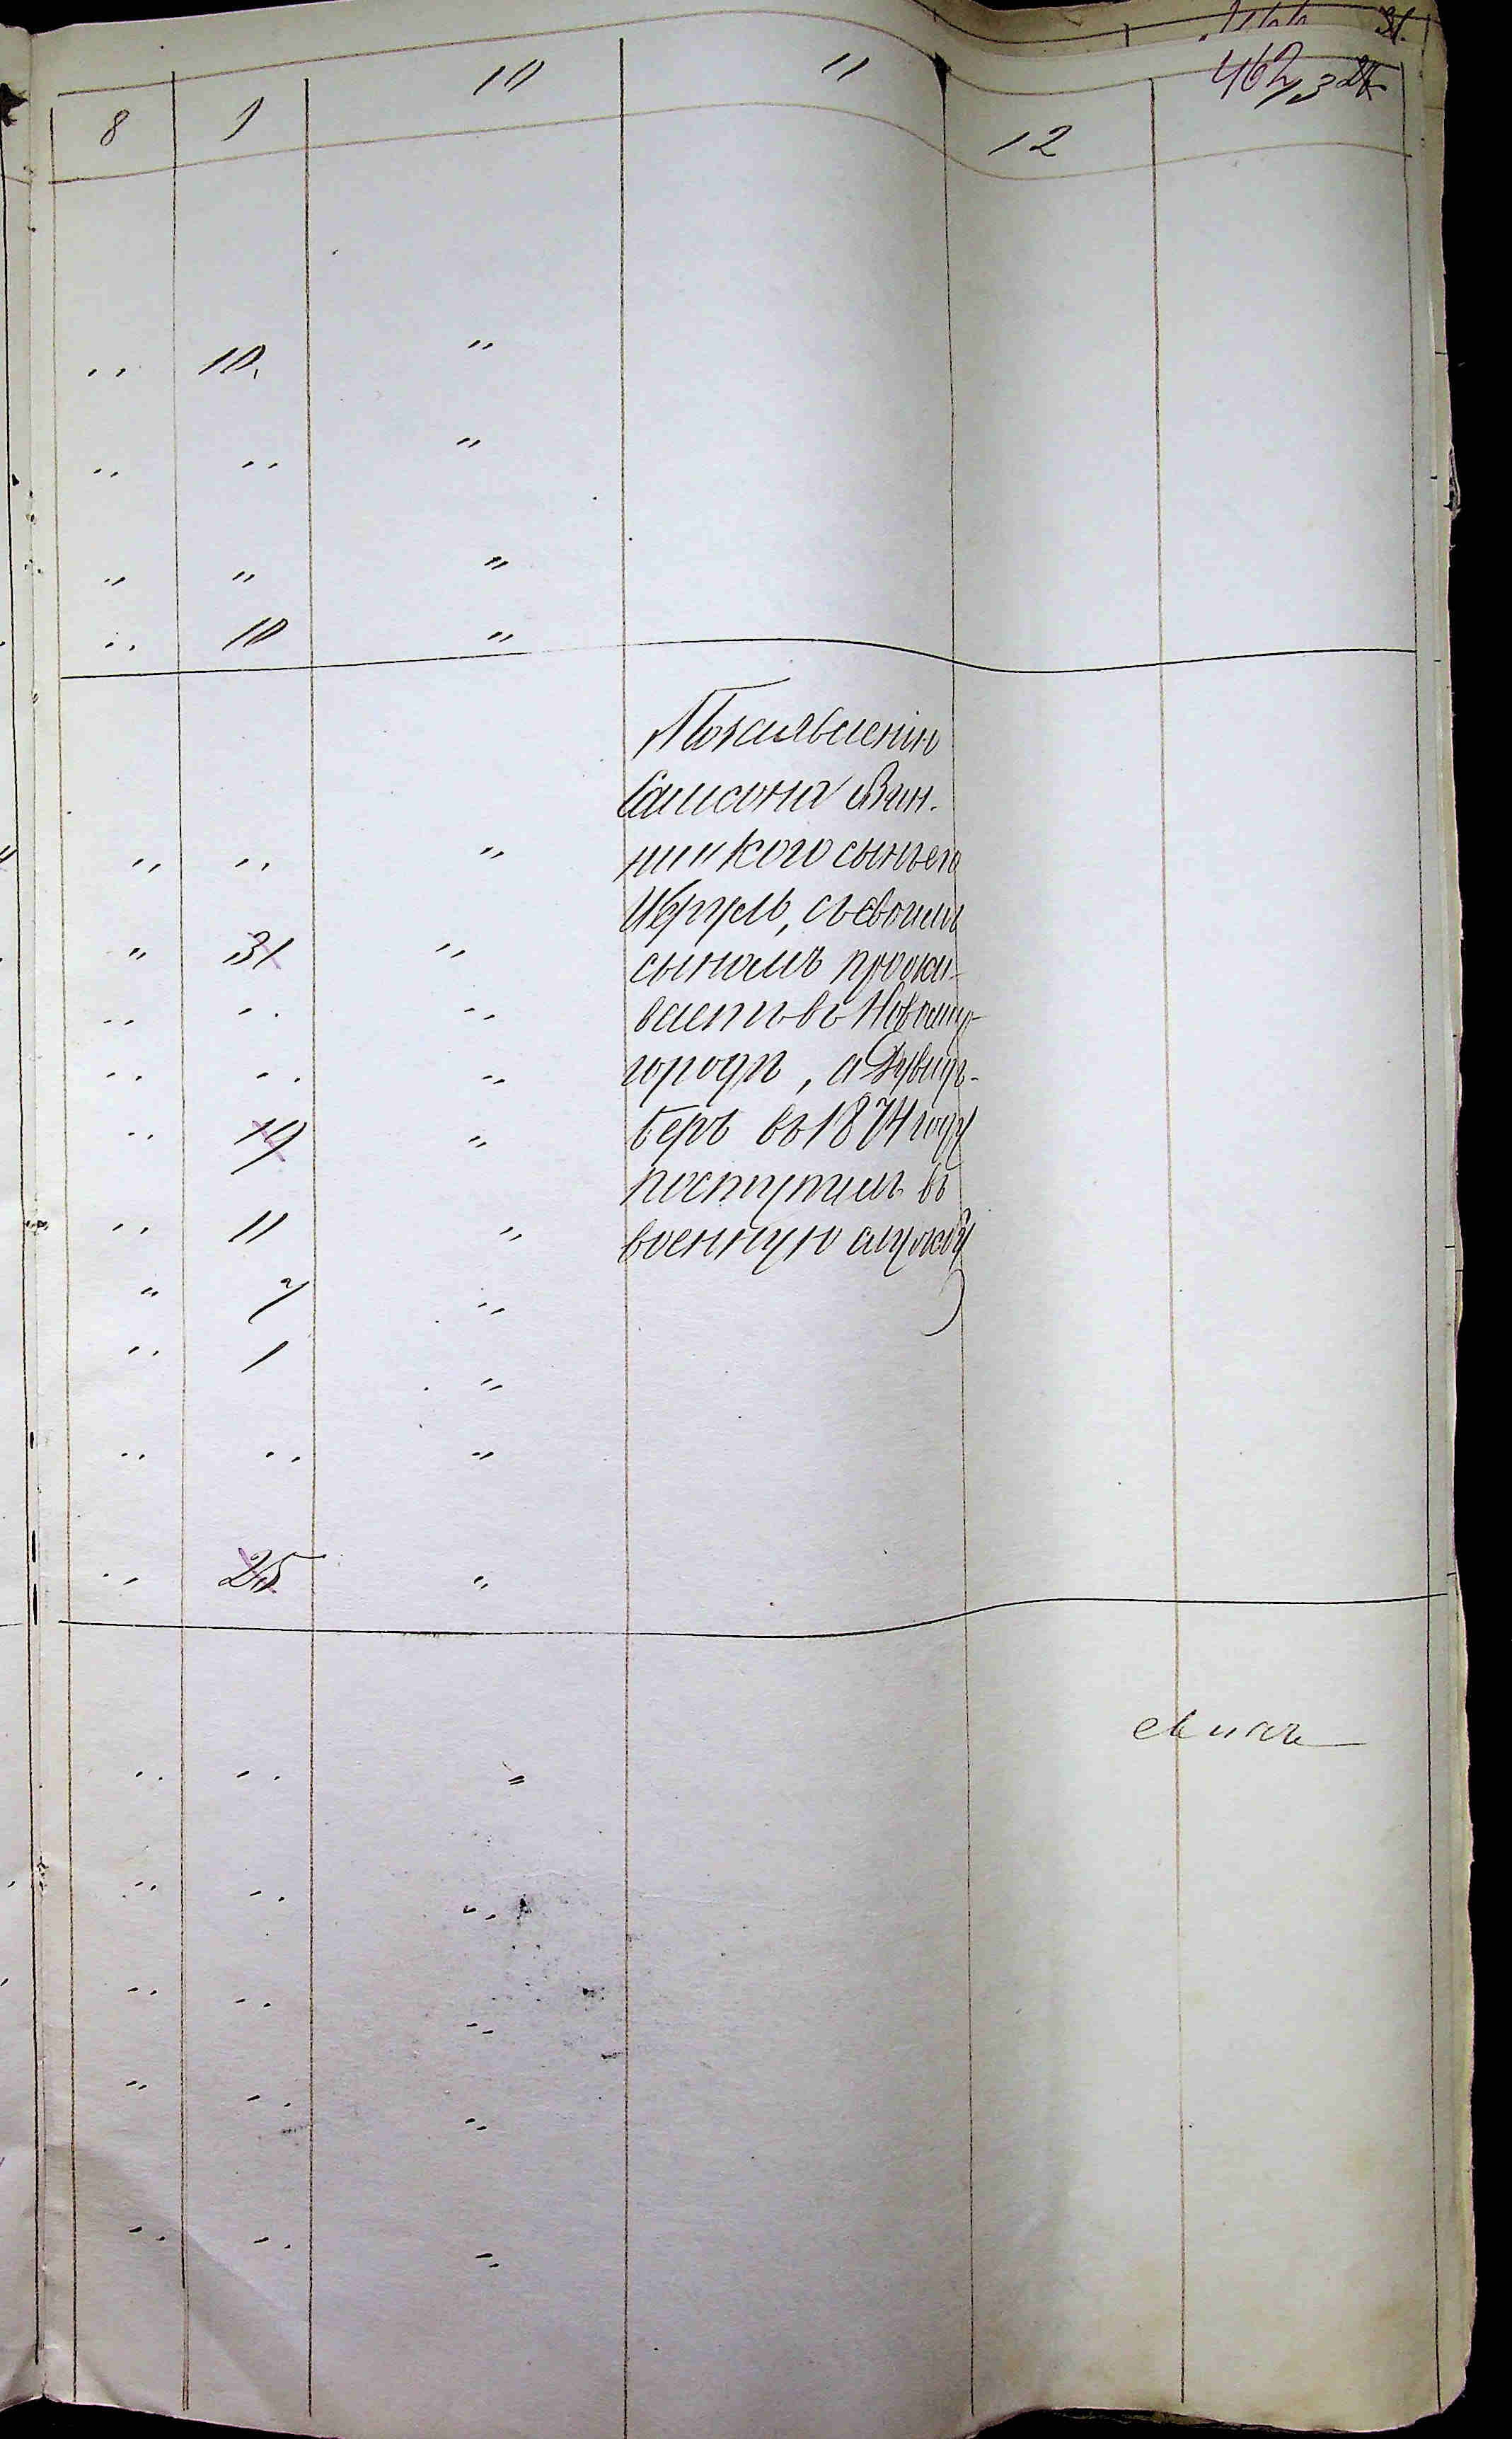 31.
462
8 9 10 11 12
„ 10. „
„ „ „
„ „ „
„ 10 „
По заявленію
Самсона Вин-
ницкого сынъ его
съ своимъ
сыномъ прожи-
ваетъ въ Новомир-
городѣ, а Дувидъ-
Беръ въ 1874 году
поступилъ въ
военную службу
„ „ „
„ 31 „
„ „ „
„ „ „
„ 19 „
„ 11 „
„ 7 „
„ 1 „
„ „ „
„ 25 „
„ „ „
„ „ „
„ „ „
„ „ „
„ „ „